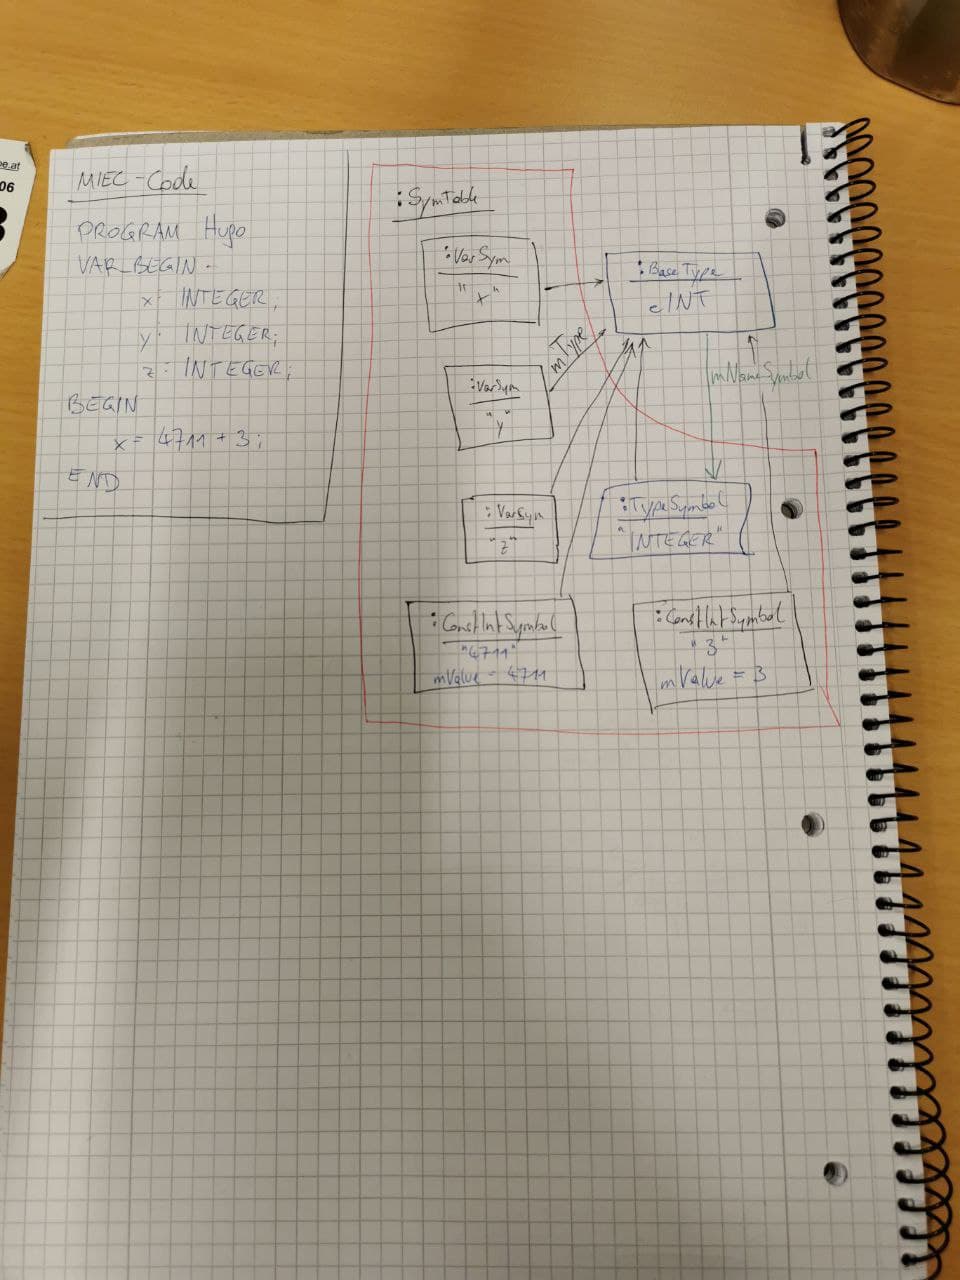 MIEC-Code
PROGRAM Hugo
VAR_BEGIN
x: INTEGER;
y: INTEGER;
z: INTEGER;
BEGIN
x = 4711 + 3;
END
:SymTable
:VarSym
"x"
:BaseType
eINT
mType
:VarSym
"y"
mNameSymbol
:VarSym
"z"
:TypeSymbol
"INTEGER"
:ConstIntSymbol
"4711"
mValue = 4711
:ConstIntSymbol
"3"
mValue = 3
06